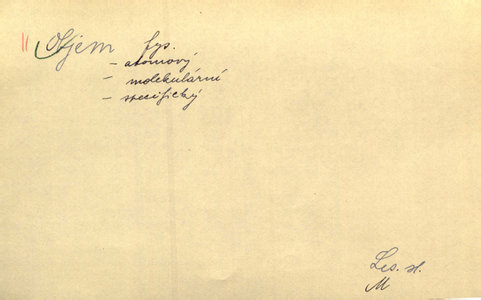 Objem fys.
- atomový
- molekulární
- specifický
Les. sl.
M